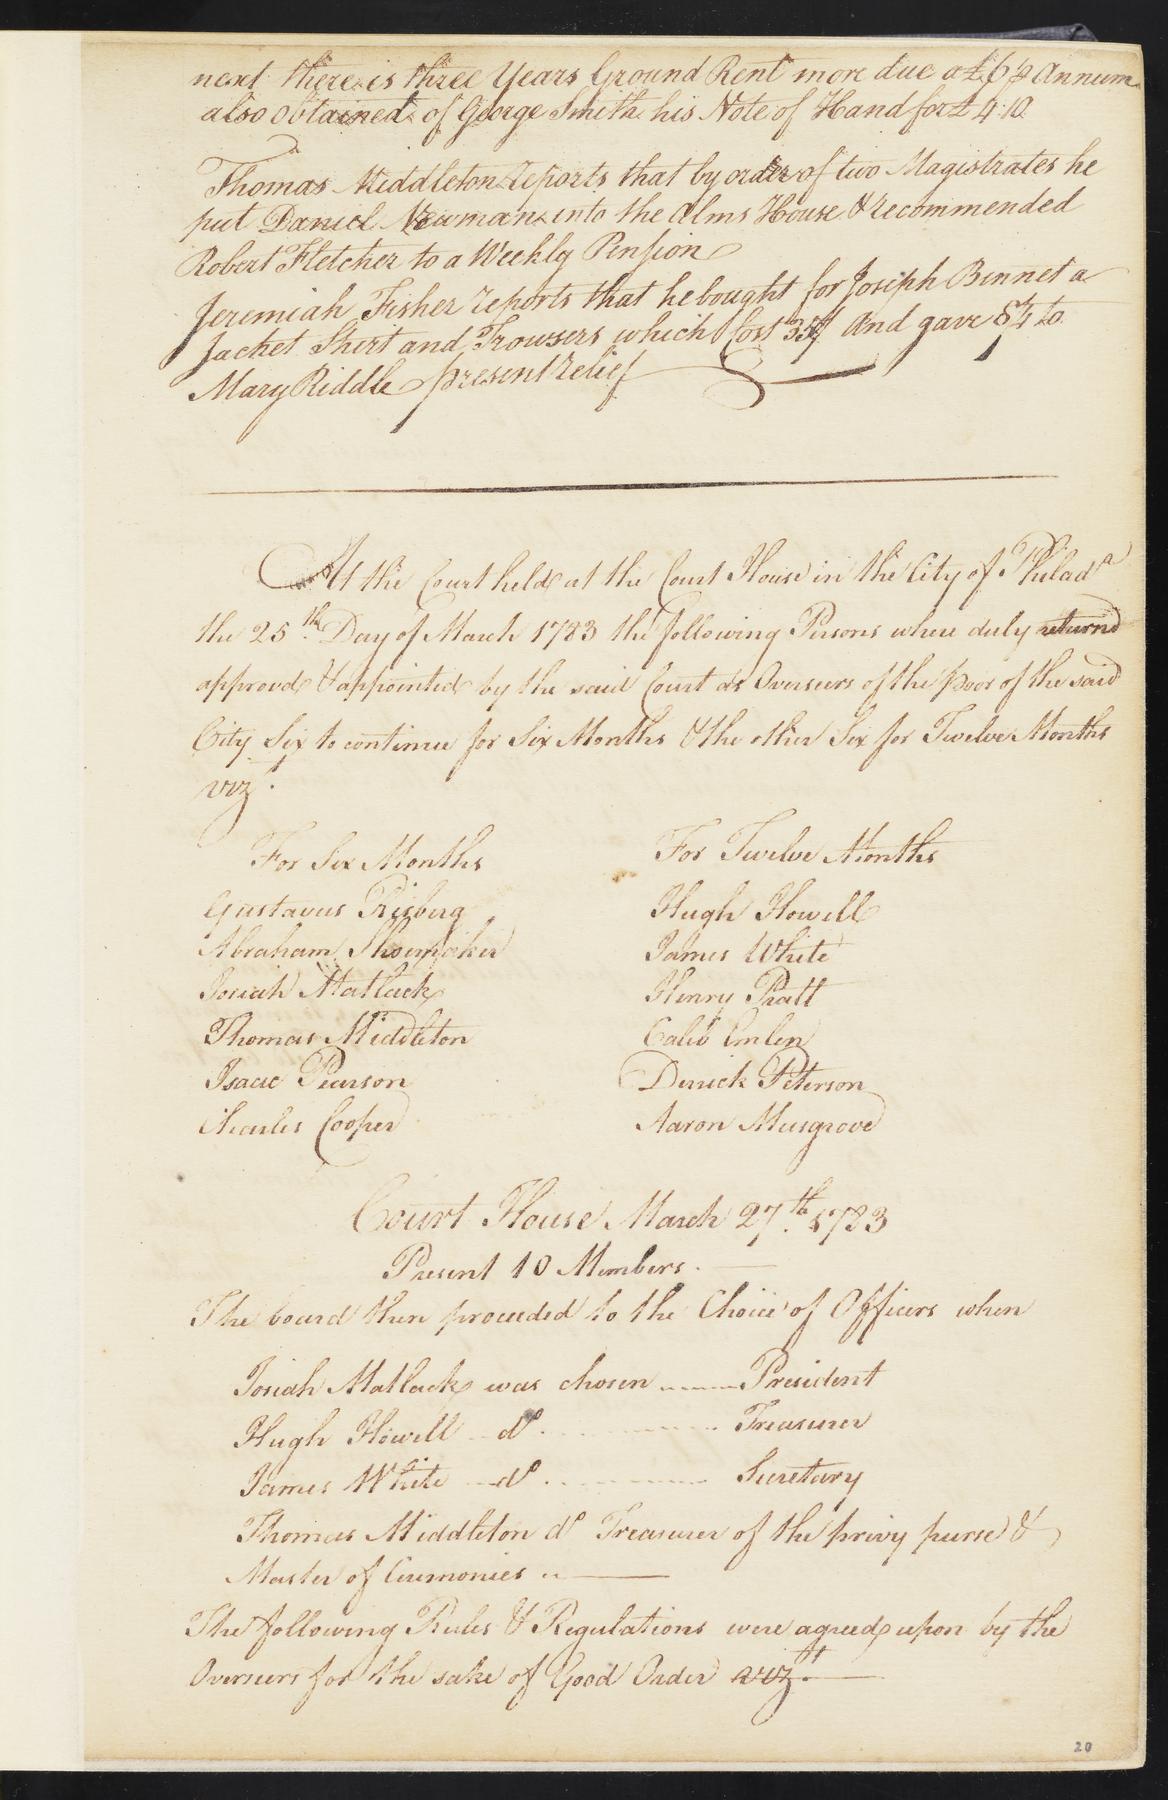 next there is three Years Ground Rent more due at £6 p Annum
also obtained of George Smith his Note of Hand for £ 4.10
Thomas Middleton reports that by order of two Magistrates he
put Daniel Newman into the Alms House & recommended
Robert Fletcher to a Weekly Pension
Jeremiah Fisher reports that he bought for Joseph Bennet a
Jacket Shirt and Trowsers which Cost 35/ And gave 8/4 to
Mary Riddle present relief
At the Court held at the Court House in the City of Philada
the 25th Day of March 1783 the following Persons where duly returnd
approvd & appointed by the said Court as Overseers of the poor of the said
City Six to continue for Six Months & the other Six for Twelve Months
vizt.
For Six Months
Gustavus Risberg
Abraham Shoemaker
Josiah Matlack
Thomas Middleton
Isaac Pearson
Charles Cooper
For Twelve Months
Hugh Howell
James White
Henry Pratt
Caleb Emlen
Derrick Peterson
Aaron Musgrove
Court House March 27th. 1783
Present 10 Members.
The board then proceeded to the Choice of Officers when
Josiah Matlack was chosen President
Hugh Howell do. Treasurer
James White do. Secretary
Thomas Middleton do Treasurer of the privy purse &
Master of Ceremonies
The following Rules & Regulations were agreed upon by the
Overseers for the sake of Good Order vizt.
20